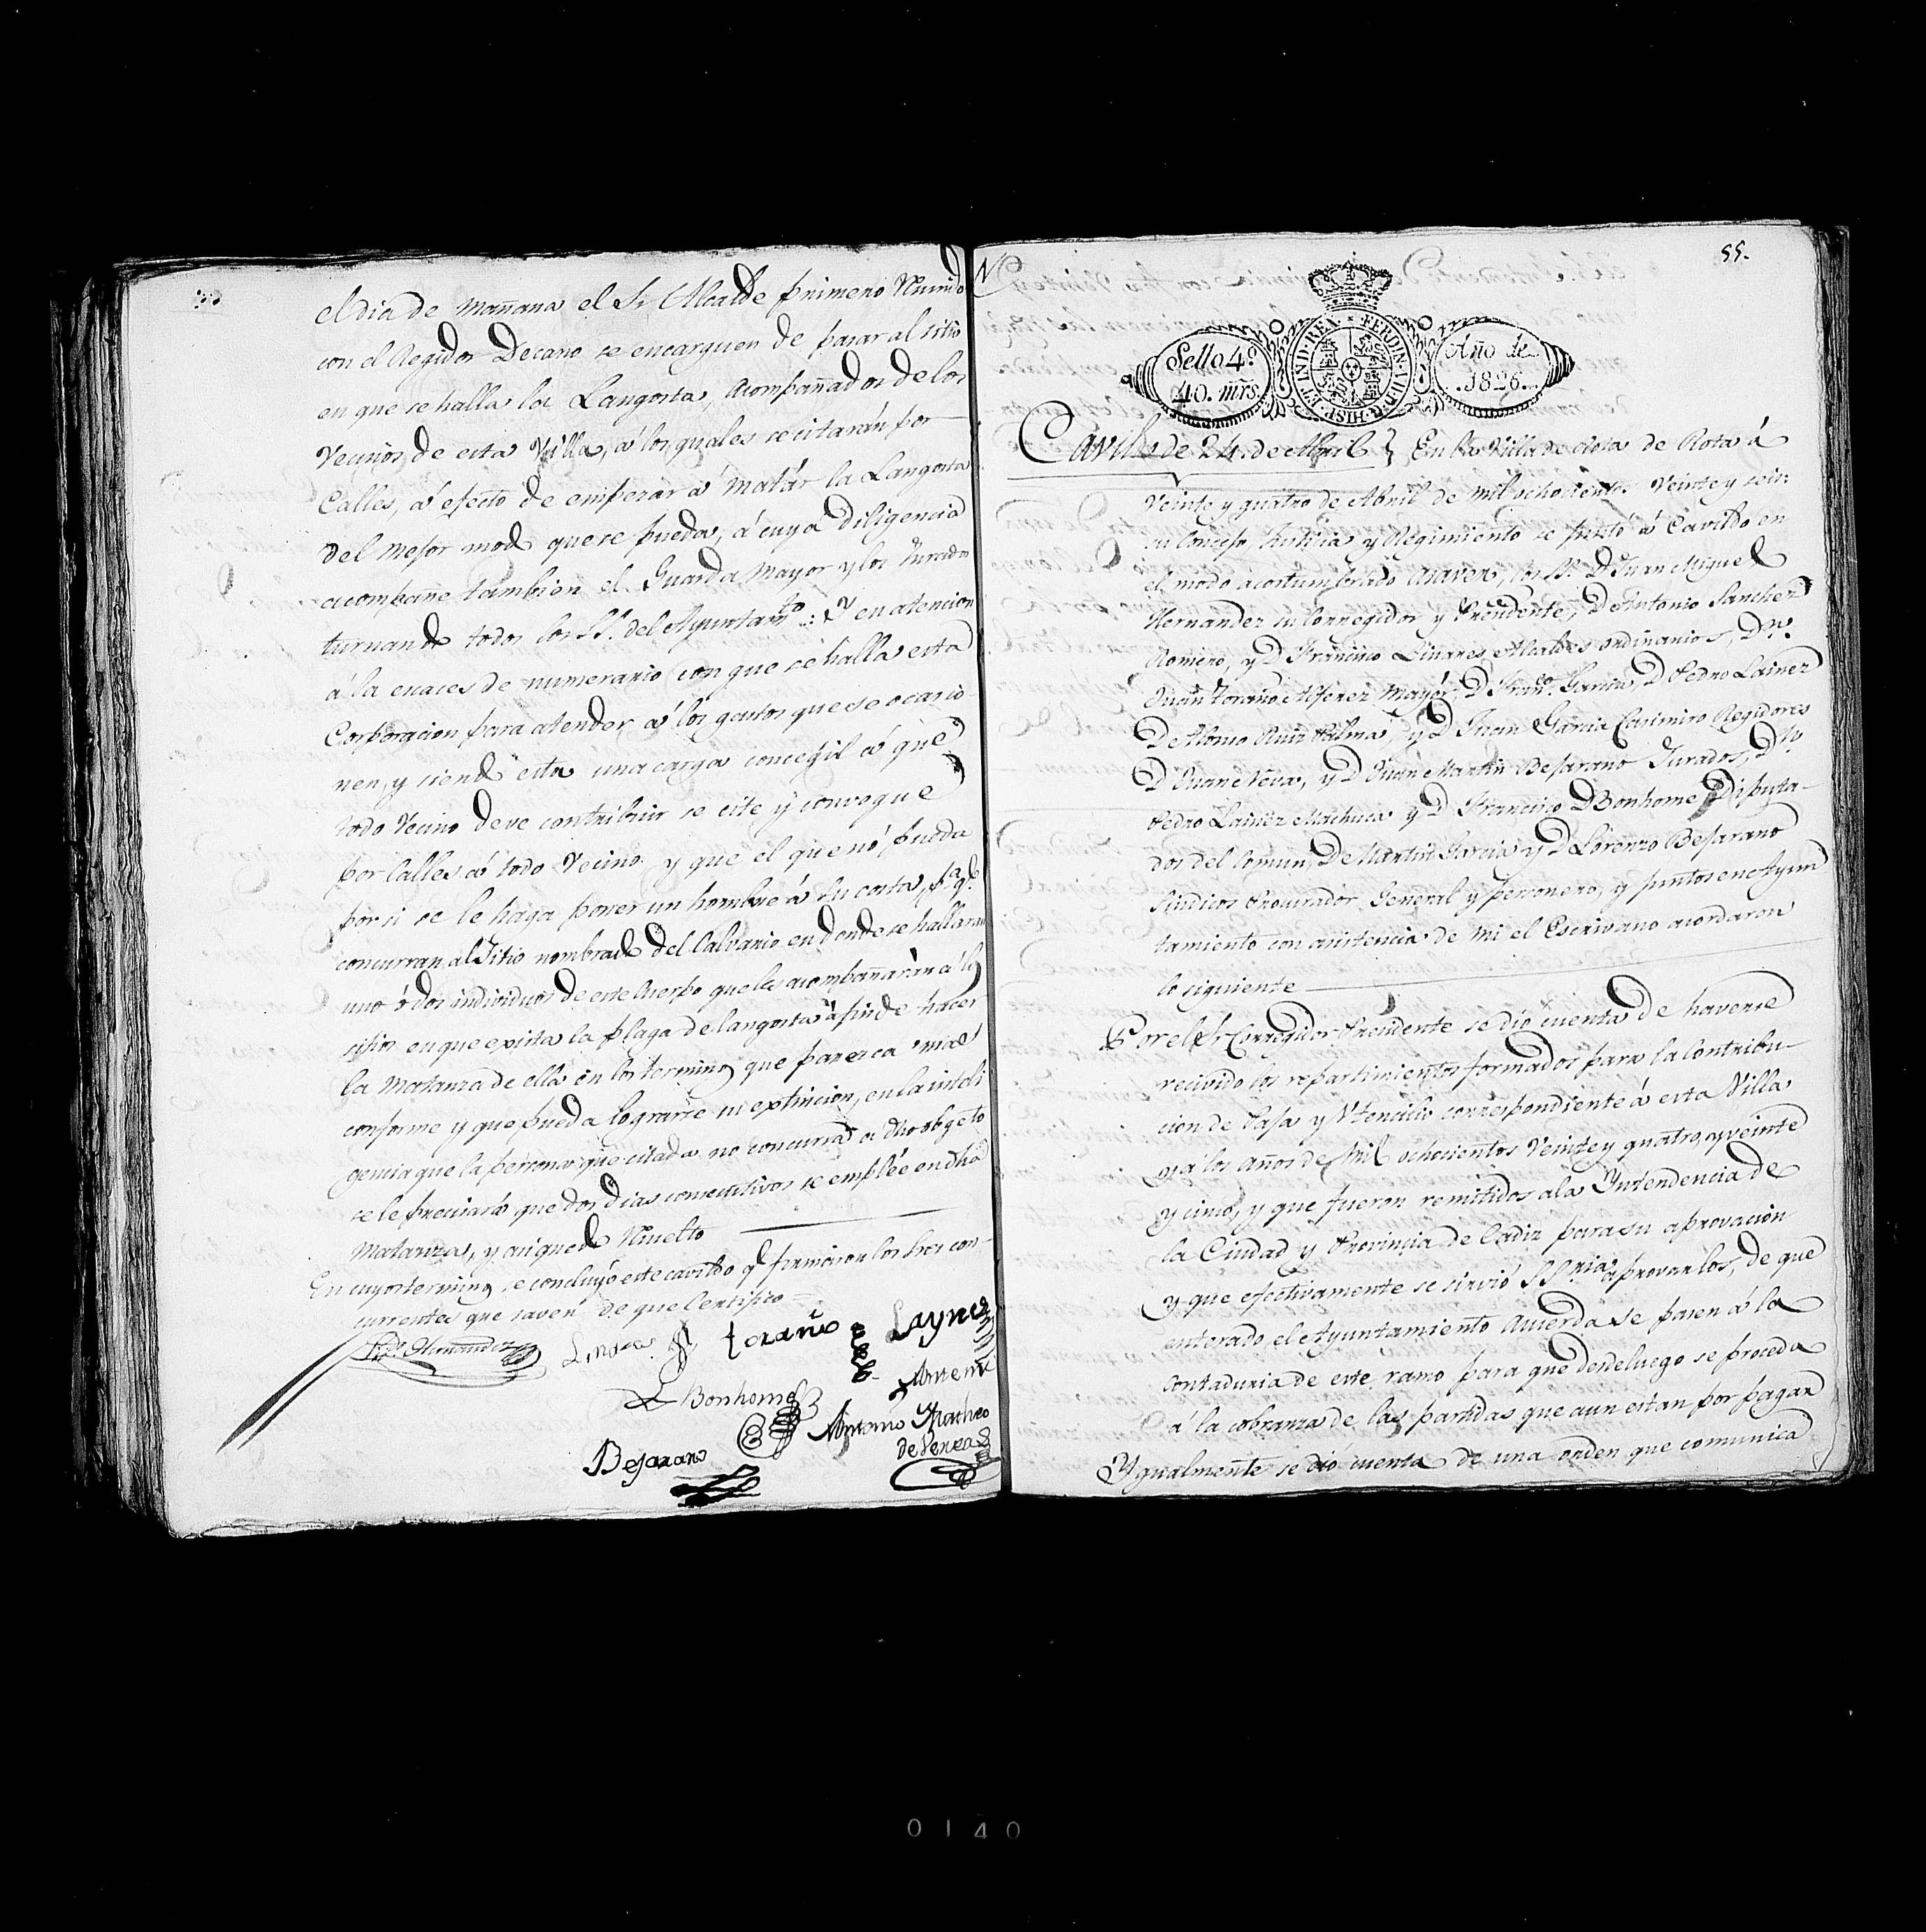 el dia de mañana el Sr Alcalde primero Unido
con el Regidor Decano se encarguen de pasar al sitio
en que se halla la Langosta, acompañados de los
Vecinos de esta Villa, a los quales se citarán por
Calles, á efecto de empezar á matár la Langosta
del mejor modo que se pueda, á cuya diligencia
acompañe tambien el Guarda mayor y los Jurados
turnando todos los SS. del Ayuntamto.: Y en atencion
á la escaces de numerario con que se halla esta
Corporacion para atender á los gastos que se ocacio
nen, y siendo esta una carga concegil á que
todo Vecino deve contribuir se cite y convoque
por Calles á todo Vecino y que el que nó pueda
por si se le haga poner un hombre á su costa, pa. qe.
concurran al Sitio nombrado del Calvario en donde se hallaran
uno ó dos individuos de este Cuerpo que les acompañarán á los
sitios en que exista la plaga de langosta á fin de hacer
la matanza de ella en los terminos que paresca mas
conforme y que pueda lograrse su extincion, en la inteli
gencia que la persona que citada no concurra a dho obgeto
se le precisará que dos dias consecutivos se emplée en dha
matanza, y asi quedó Resuelto
En cuyos terminos se concluyó este cavildo qe firmaron los Sres con
currentes que saven de que Certifico =
Ldo. Hernandez Linares Loraño Laynez
Bonhome Antemi
Bejarano Antonio Matheo
de Perea
55.
Sello 4º
40. mrs.
FERDIN. VII. D. G. HISP. ET IND. REX
Año de
1826.
Cavildo de 24 de Abril En la Villa de Rota de Rota á
Veinte y quatro de Abril de mil ochocientos Veinte y seis:
su Concejo, Justicia y Regimiento se juntó á Cavildo en
el modo acostumbrado asaver, los SS. Dn Juan Miguel
Hernandez su Corregidor y Presidente, Dn Antonio Sanchez
Romero, y Dn Francisco Linares Alcaldes ordinarios, Dn.
Juan Loraño Alferez mayór, Dn Franco. Garcia, Dn Pedro Lainez
Dn Alonso Ruiz Palma, y Dn Juan Garcia Casimiro Regidores
Dn Juan Neva, y Dn Juan Martin Bejarano Jurados, Dn
Pedro Lainez Machuca y Dn Francisco Bonhome Diputa-
dos del Comun, Dn Martin Garcia y Dn Lorenzo Bejarano
Sindicos Procurador General y personero, y juntos en Ayun
tamiento con asistencia de mi el Escrivano acordaron
lo siguiente
Por el Sr Corregidor Presidente se dio cuenta de haverse
recivido los repartimientos formados para la Contribu-
cion de Paja y Utencilio correspondiente á esta Villa
y á los Años de mil ochocientos Veinte y quatro, y veinte
y cinco, y que fueron remitidos a la Yntendencia de
la Ciudad y Provincia de Cadiz para su aprovacion
y que efectivamente se sirvió SSria aprovarlos, de que
enterado el Ayuntamiento Acuerda se pasen á la
contaduria de este ramo para que desde luego se proceda
á la cobranza de las partidas que aun estan por pagar
Ygualmente se dió cuenta de una orden que comunica
0140